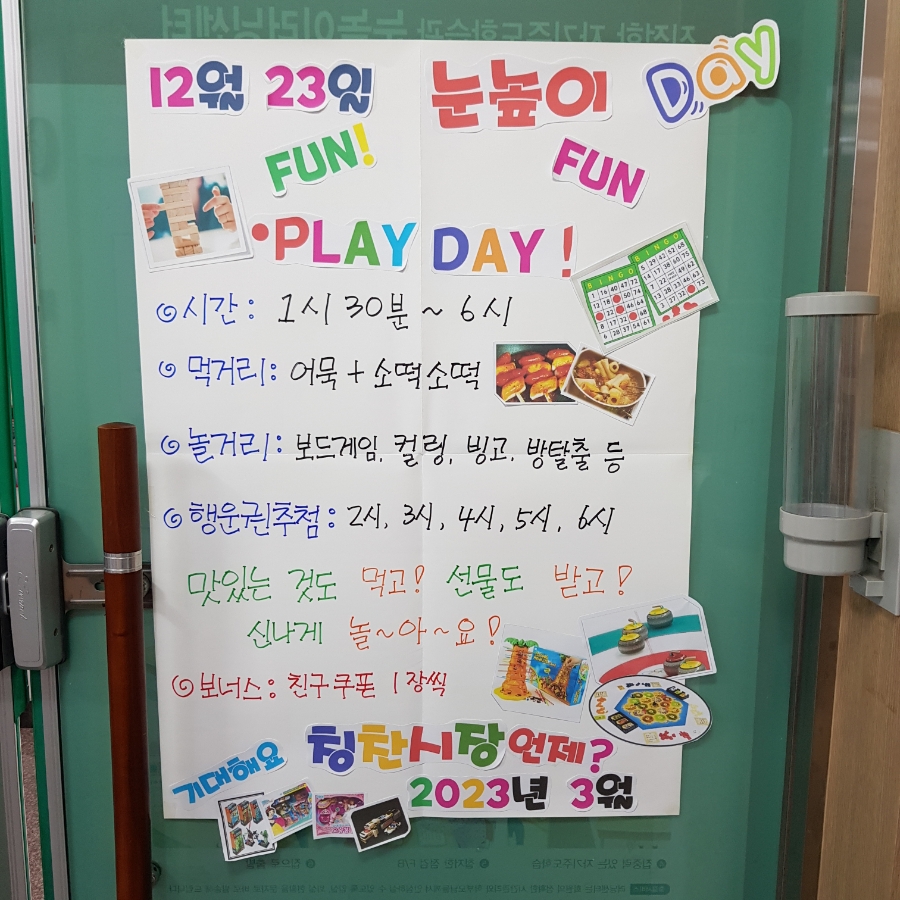 12월 23일 눈높이 Day
FUN! FUN
•PLAY DAY!
시간: 1시 30분 ~ 6시
먹거리: 어묵 + 소떡소떡
놀거리: 보드게임, 컬링, 빙고, 방탈출 등
행운권추첨: 2시, 3시, 4시, 5시, 6시
맛있는 것도 먹고! 선물도 받고!
신나게 놀~아~요!
보너스: 친구쿠폰 1장씩
기대해요 칭찬시장 언제?
2023년 3월
BINGO BINGO